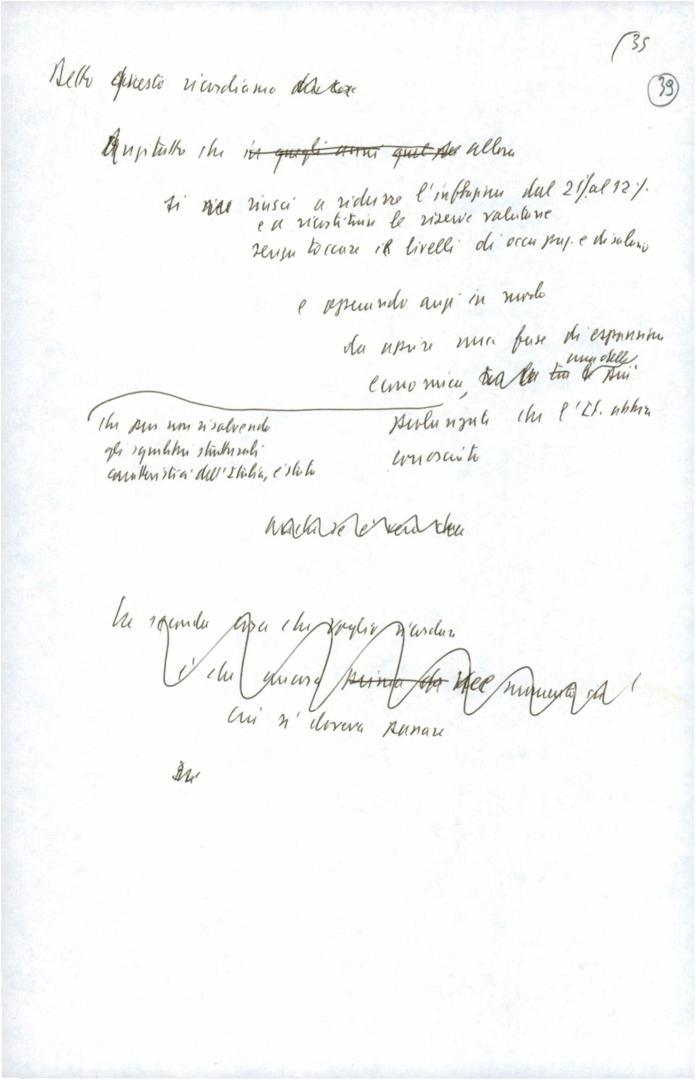 35
39
Detto questo ricordiamo
Anzitutto che in quegli anni allora
si riuscì a ridurre l'inflazione dal 21% al 12%
e a ricostituire le riserve valutarie
senza toccare i livelli di occupaz. e di salario
e operando anzi in modo
da aprire una fase di espansione
economica, una delle più
che pur non risolvendo
gli squilibri strutturali
caratteristici dell'Italia, è stata
prolungate che l'It. abbia
conosciuto
La seconda cosa che voglio ricordare
è che ancora
cui si doveva pensare